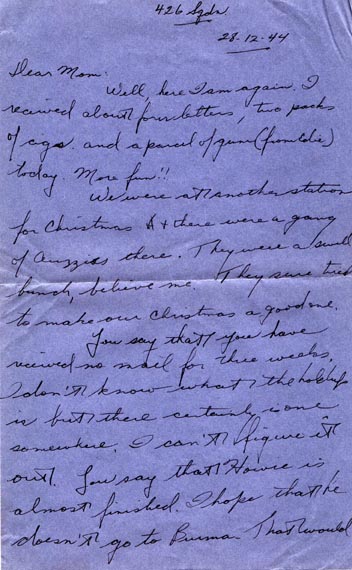 426 Sqdn.
28-12-44
Dear Mom:
Well here I am again. I
received about four letters, two packs
of cigs. and a parcel of gum (from Edie)
today. More fun!!
We were at another station
for Christmas & there were a gang
of Auzzies there. They were a swell
bunch, believe me. They sure tried
to make our Christmas a good one.
You say that you have
received no mail for three weeks,
I don't know what the holdup
is but there certainly is one
somewhere. I can't figure it
out. You say that Howie is
almost finished. I hope that he
doesn't go to Burma. That would